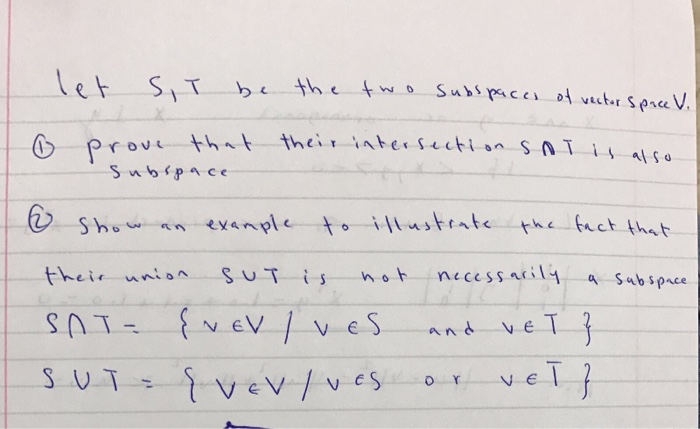 let S, T be the two subspaces of vector space V.
① prove that their intersection S ∩ T is also
subspace
② Show an example to illustrate the fact that
their union S ∪ T is not necessarily a subspace
S ∩ T = { v ∈ V / v ∈ S and v ∈ T }
S ∪ T = { v ∈ V / v ∈ S or v ∈ T }